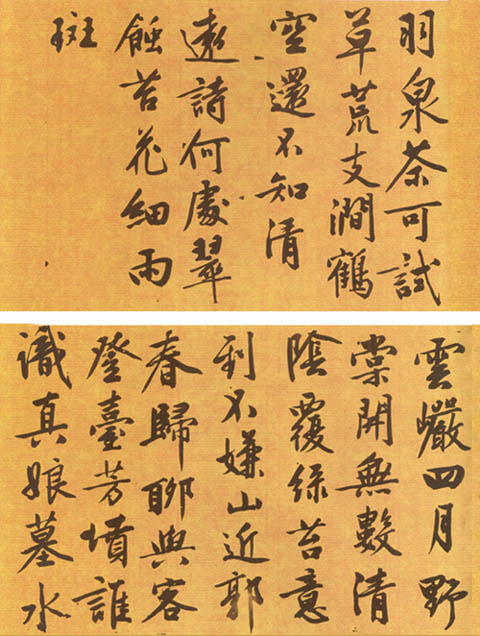 羽泉茶可試
草荒支澗鶴
空還不知清
遠詩何處翠
蝕苔花細雨
斑
雲巖四月野
棠開無數清
陰覆綠苔意
到不嫌山近郭
春歸聊與客
登臺芳墳誰
識真娘墓水